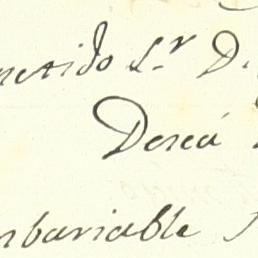 metido Sr. D.
Doreá
nbariable